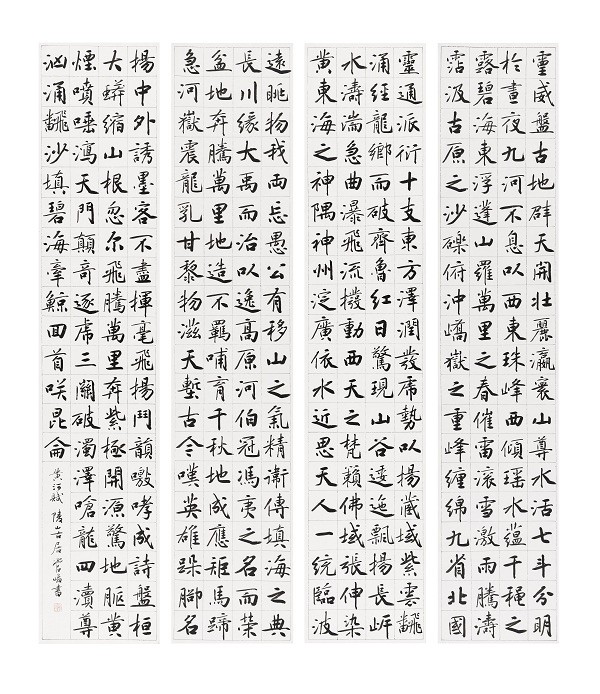 靈威盤古地辟天開壯麗瀛寰山尊水活七斗分明
於晝夜九河不息以西東珠峰西傾瑤水蘊千種之
露碧海東浮蓬山羅萬里之春催雷滾雪激雨騰濤
霑汲古原之沙礫俯沖嶠嶽之重峰纏綿九省北國
靈通派衍十支東方澤潤發席勢以揚葳域紫雲翻
涌經龍鄉而破齊魯紅日驚現山谷逶迤飄揚長岸
水濤湍急曲瀑飛流撥動西天之梵籟佛域張伸染
黃東海之神隅神州淀廣依水近思天人一統臨波
遠眺物我兩忘愚公有移山之氣精衛傳填海之典
長川緣大禹而治以逸高原河伯冠馮夷之名而榮
盆地奔騰萬里地造不羈哺育千秋地成應矩馬蹄
急河嶽震龍乳甘黎物滋天塹古今噗英雄跺腳名
揚中外誘墨客不盡揮毫飛揚鬥韻噭哮成詩盤桓
大蟒縮山根忽尔飛騰萬里奔紫極開源驚地脈黃
煙噴唾瀉天門顛奇逐虎三關破濁澤嗆龍四瀆尊
汹涌翻沙填碧海牽鯨回首咲昆侖
黃河賦 書